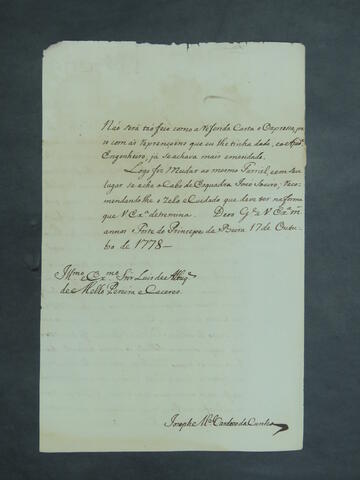 Não será tão feio como a referida Carta o Expressa, po
is com as reprençoens que eu lhe tinha dado, e o
Engenheiro, já se achava mais emendado.
Logo fiz Mudar ao mesmo Furriel, e em seu
lugar se acha o Cabo de Esquadra Ignco Soeiro, reco
mendando lhe o Zelo e Cuidado que deve ter na forma
que V. Exª detremina. Deos Gde a V Exª ms
annos Forte do Principe da Beira 17 de Outu
bro de 1778—
Illmo e Exmo Snr Luis de Albuqe
de Mello Pereira e Caceres.
Joseph Ml Cardozo da Cunha